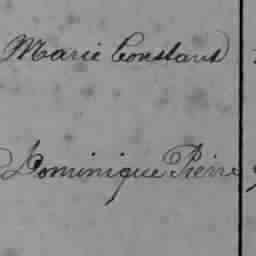 Marie Constant
Dominique Pierre